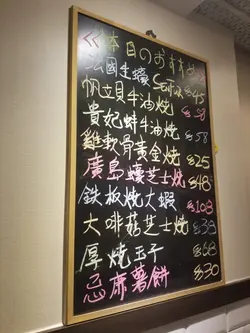 <<本日のおすすめ
法國生蠔 $45
帆立貝牛油燒 $38
貴妃蚌牛油燒 $58
雞軟骨黃金燒 $25
廣島蠔芝士燒 $48
鉄板燒大蝦 $108
大啡菇芝士燒 $38
厚燒玉子 $68
忌廉薯餅 $30